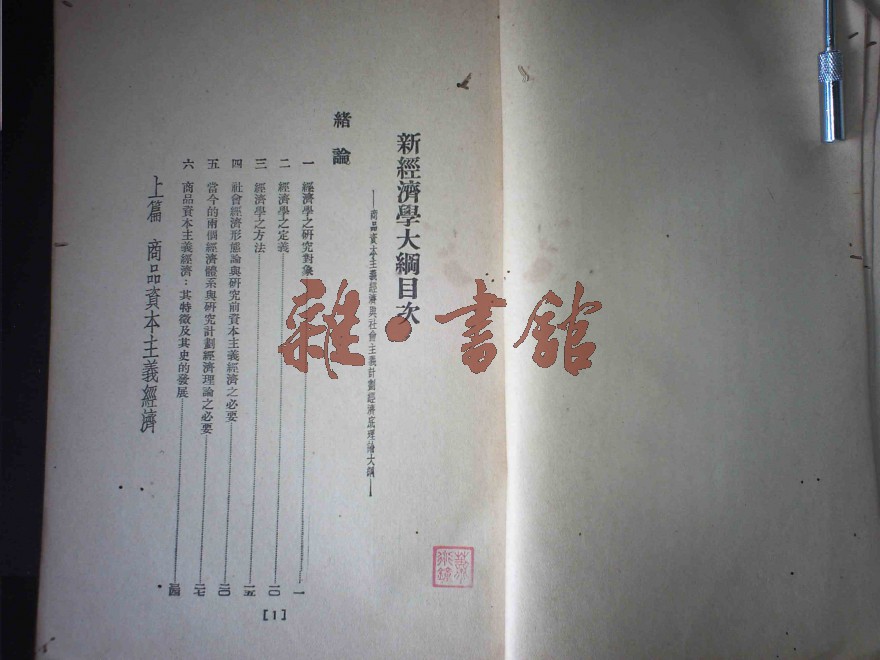 新經濟學大綱目次
——商品資本主義經濟與社會主義計劃經濟底理論大綱——
緒論
一 經濟學之研究對象 一
二 經濟學之定義 一〇
三 經濟學之方法 一五
四 社會經濟形態論與研究前資本主義經濟之必要 二〇
五 當今的兩個經濟體系與研究計劃經濟理論之必要 二七
六 商品資本主義經濟:其特徵及其史的發展
上篇 商品資本主義經濟
[1]
雜·書館